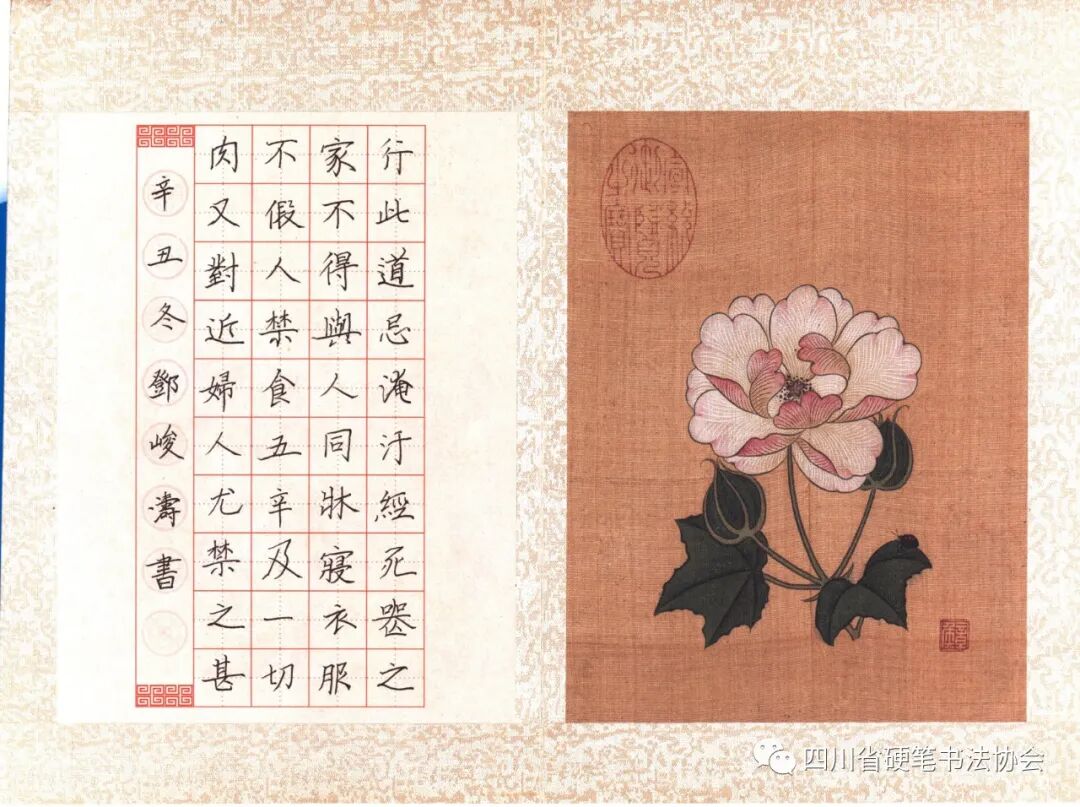 行此道忌淹汙經死喪之
家不得與人同牀寢衣服
不假人禁食五辛及一切
肉又對近婦人尤禁之甚
辛丑冬鄧峻濤書
四川省硬笔书法协会